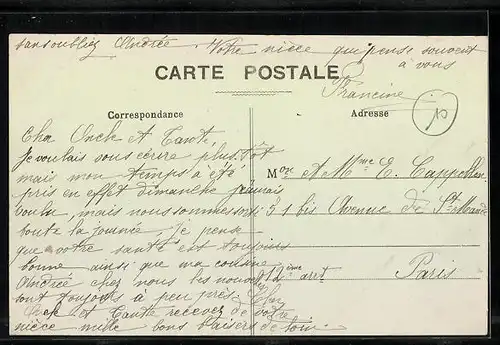 sans oublier Andrée. Votre nièce qui pense souvent
à vous
Francine
CARTE POSTALE
Correspondance
Adresse
10
Cher Oncle et Tante,
Je voulais vous écrire plus tôt
mais mon temps a été
pris en effet dimanche j'aurais
voulu, mais nous sommes sorti
toute la journée, je pense
que votre santé est toujours
bonne ainsi que ma cousine
Andrée chez nous les nouvelles
sont toujours à peu près
Oncle et Tante recevez de votre
nièce mille bons baisers de loin.
Mor et Mme E. Cappellen
51 bis Avenue de St Mandé
12ème arrt Paris